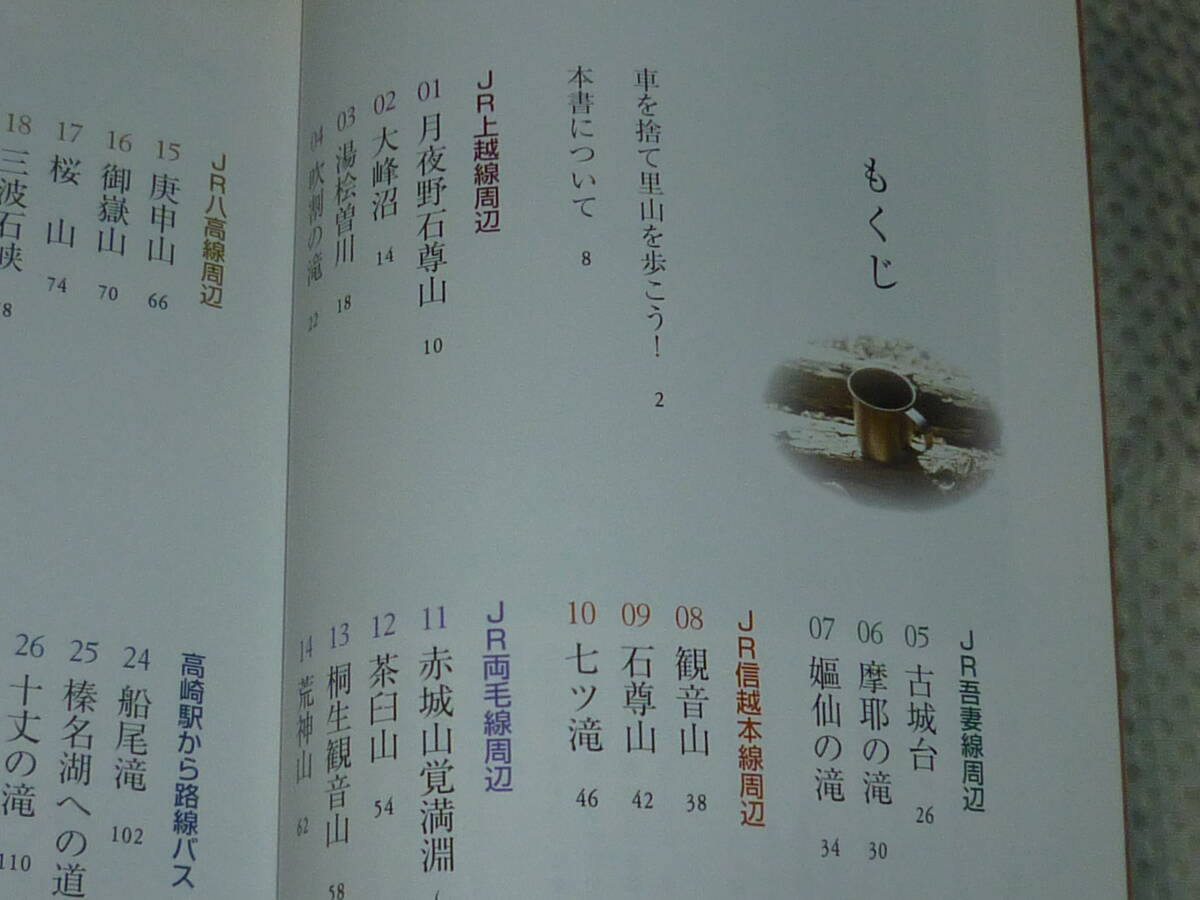 もくじ
車を捨て里山を歩こう! 2
本書について 8
JR上越線周辺
01 月夜野石尊山 10
02 大峰沼 14
03 湯桧曽川 18
04 吹割の滝 22
JR吾妻線周辺
05 古城台 26
06 摩耶の滝 30
07 嫗仙の滝 34
JR信越本線周辺
08 観音山 38
09 石尊山 42
10 七ツ滝 46
JR両毛線周辺
11 赤城山覚満淵
12 茶臼山 54
13 桐生観音山 58
14 荒神山 62
JR八高線周辺
15 庚申山 66
16 御嶽山 70
17 桜山 74
18 三波石峡
高崎駅から路線バス
24 船尾滝 102
25 榛名湖への道
26 十丈の滝 110